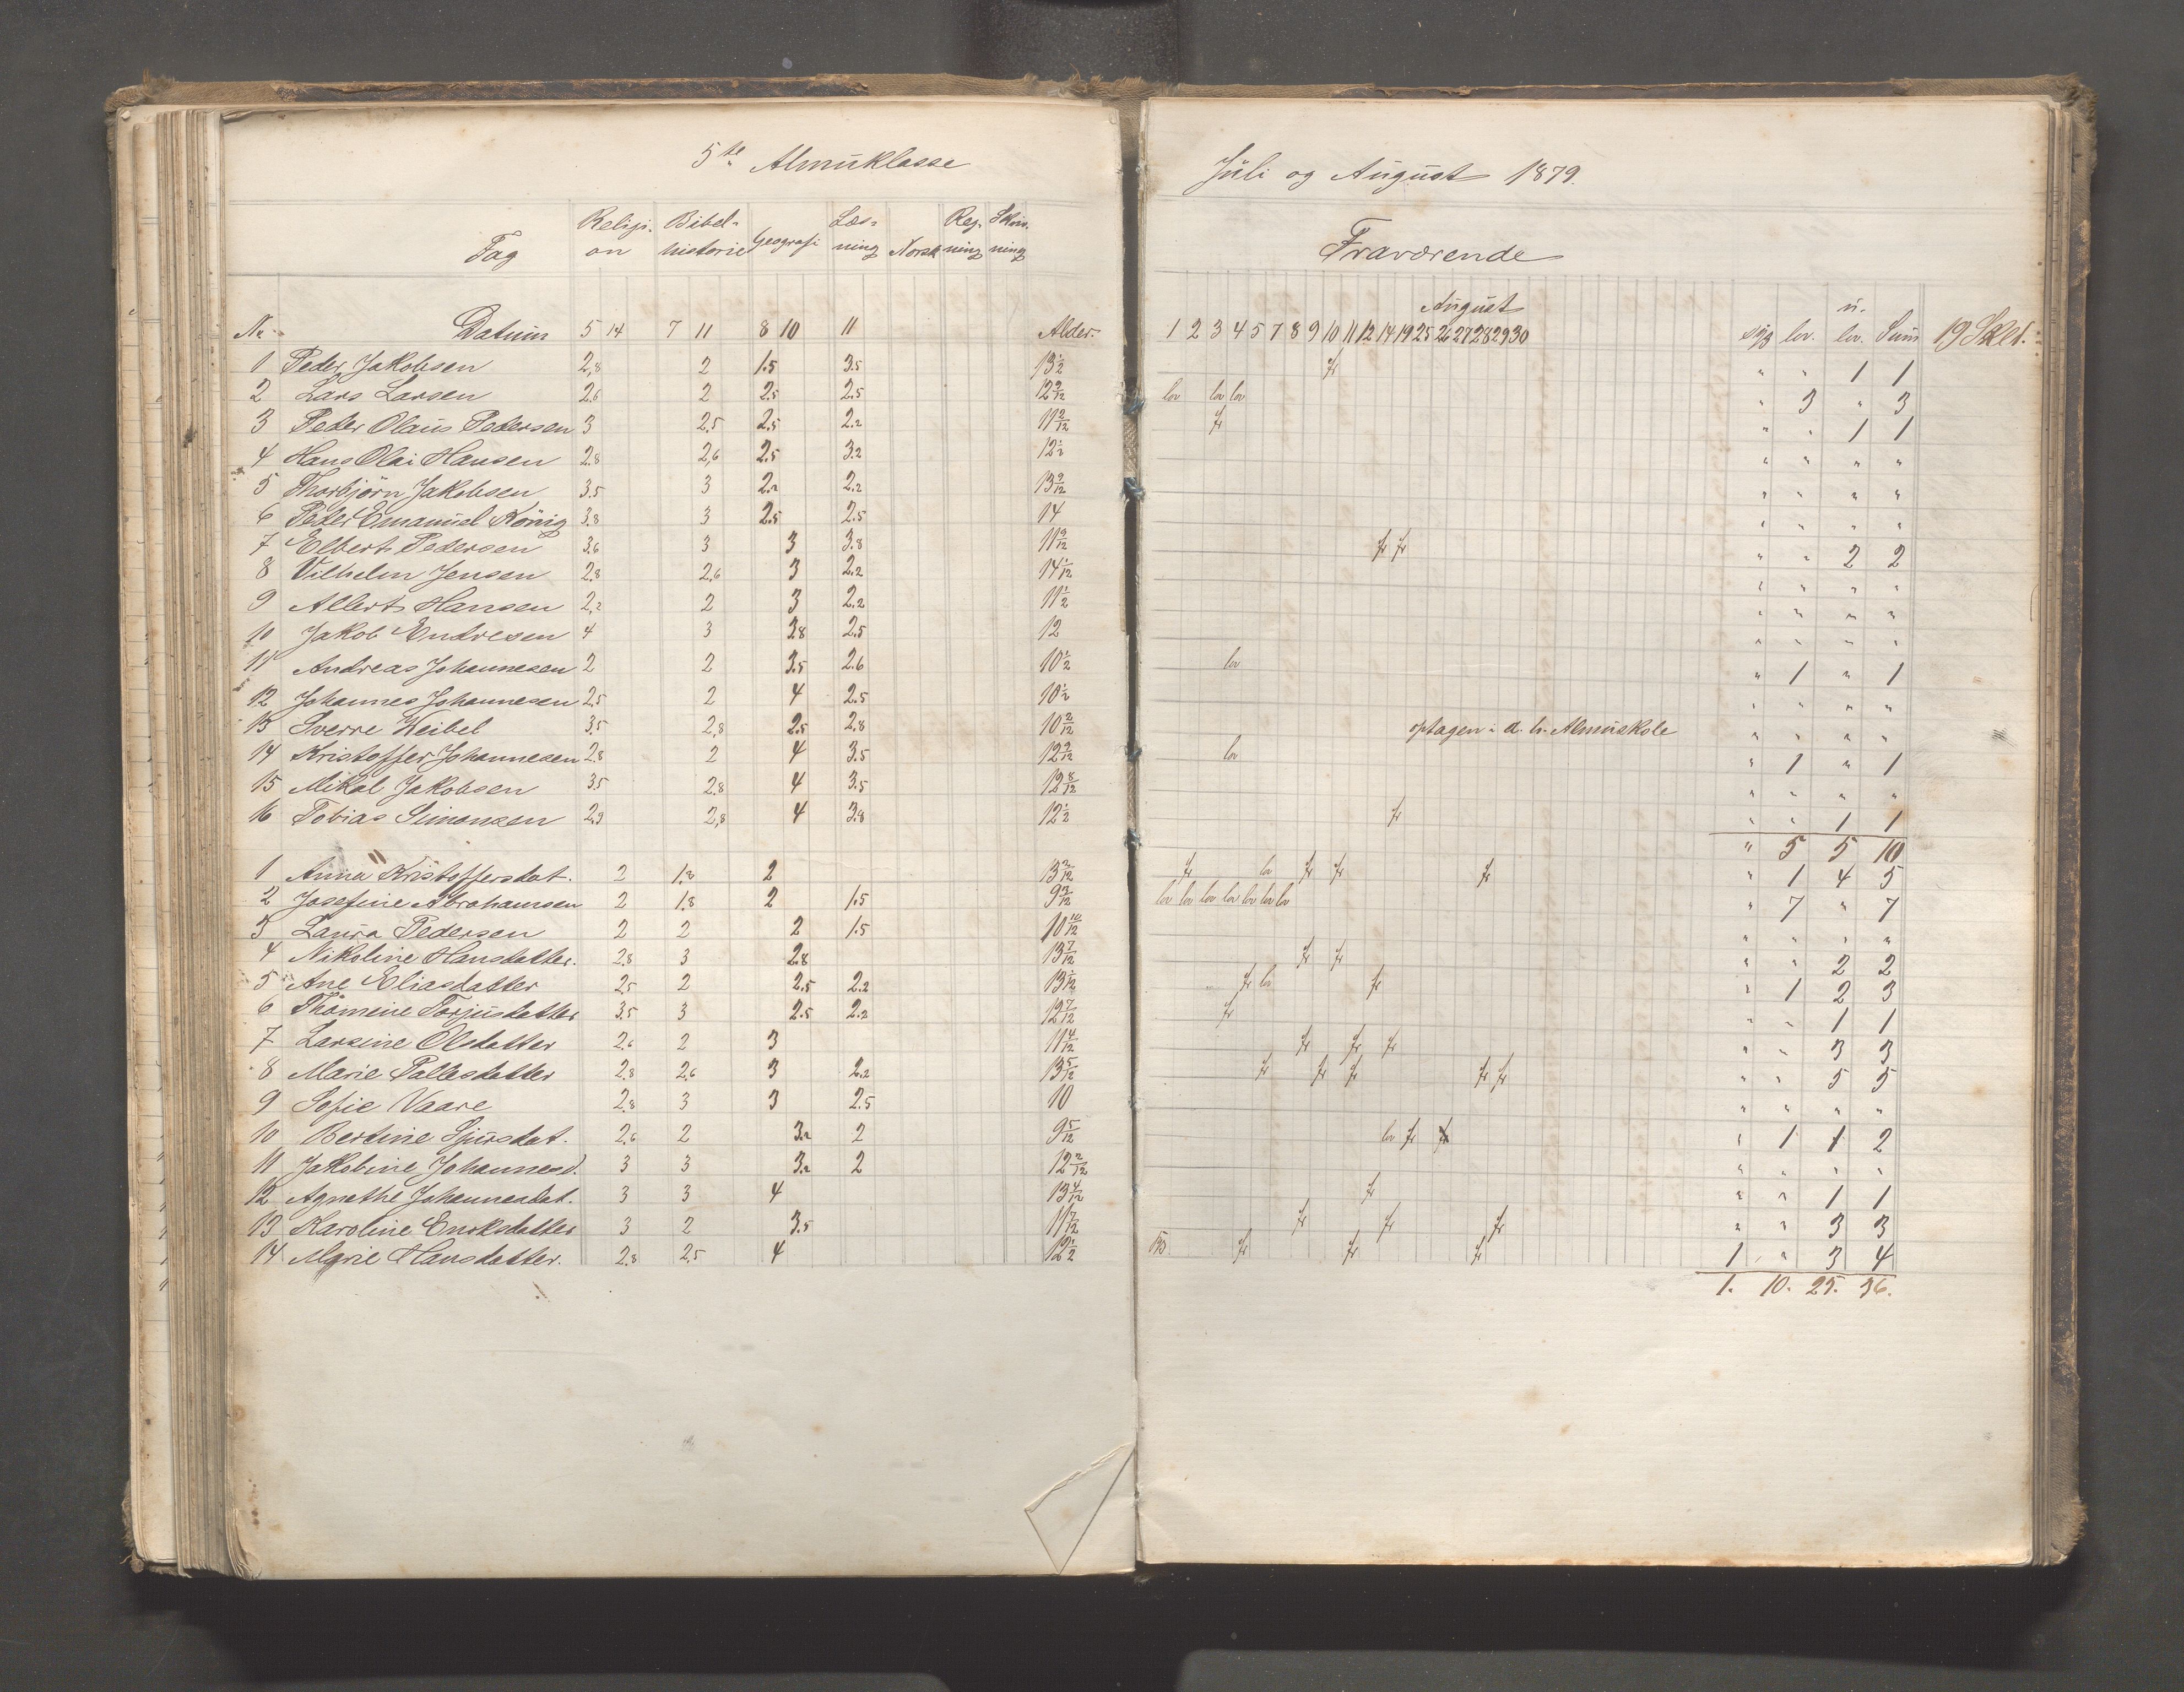 5te Almuklasse
Fag Religi- on Bibel- historie Geografi Læs- ning Norsk Reg- ning Skriv- ning
No Datum 5 14 7 11 8 10 11 Alder.
1 Peder Jakobsen 2,8 2 1.5 3.5 13 1/2
2 Lars Larsen 2.6 2 2.5 2.5 12 9/12
3 Peder Olaus Pedersen 3 2.5 2.5 2.2 11 2/12
4 Hans Olai Hansen 2.8 2,6 2.5 3.2 12 1/2
5 Thorbjörn Jakobsen 3.5 3 2.2 2.2 13 9/12
6 Peder Emanuel König 3.8 3 2.5 2.5 14
7 Elbert Pedersen 3.6 3 3 3.8 11 9/12
8 Vilhelm Jensen 2.8 2.6 3 2.2 14 1/12
9 Albert Hansen 2,2 2 3 2.2 11 1/2
10 Jakob Endresen 4 3 3.8 2.5 12
11 Andreas Johannesen 2 2 3.5 2.6 10 1/2
12 Johannes Johannesen 2.5 2 4 2.5 10 1/2
13 Sverre Weibel 3.5 2,8 2.5 2.8 10 2/12
14 Kristoffer Johannesen 2.8 2 4 3.5 12 2/12
15 Mikal Jakobsen 3.5 2.8 4 3.5 12 8/12
16 Tobias Simonsen 2.9 2,8 4 3.8 12 1/2
1 Anna Kristoffersdat. 2 1.8 2 13 2/12
2 Josefine Abrahamsen 2 1.8 2 1.5 9 2/12
3 Laura Pedersen 2 2 2 1.5 10 10/12
4 Nikoline Hansdatter. 2.8 3 2.8 13 7/12
5 Ane Eliasdatter 2.5 2 2.5 2.2 13 1/12
6 Thomine Torjusdatter 3.5 3 2.5 2.2 12 7/12
7 Larsine Olsdatter 2.6 2 3 11 4/12
8 Marie Pallesdatter 2.8 2.6 3 2.2 13 5/12
9 Sofie Vaare 2.8 3 3 2.5 10
10 Bertine Sjursdat. 2.6 2 3.2 2 9 5/12
11 Jakobine Johannesd. 3 3 3.2 2 12 2/12
12 Agnethe Johannesdat. 3 3 4 13 4/12
13 Karoline Eriksdatter 3 2 3.5 11 7/12
14 Marie Hansdatter. 2.8 2.5 4 12 1/2
Juli og August 1879.
Fraværende
August
1 2 3 4 5 7 8 9 10 11 12 14 19 25 26 27 28 29 30 syg lov. u. lov. Sum 19 Skld.
fr " " 1 1
lov lov lov " 3 " 3
fr " " 1 1
" " " "
" " " "
" " " "
fr fr " " 2 2
" " " "
" " " "
" " " "
lov " 1 " 1
" " " "
optagen i d. h. Almuskole " " " "
lov " 1 " 1
" " " "
fr " " 1 1
" 5 5 10
fr lov fr fr fr " 1 4 5
lov lov lov lov lov lov lov " 7 " 7
" " " "
fr fr " " 2 2
fr lov fr " 1 2 3
fr " " 1 1
fr fr fr " " 3 3
fr fr fr fr fr " " 5 5
" " " "
lov fr fr " 1 1 2
" " " "
fr " " 1 1
fr fr fr " " 3 3
syg fr fr fr 1 " 3 4
1. 10. 25. 36.